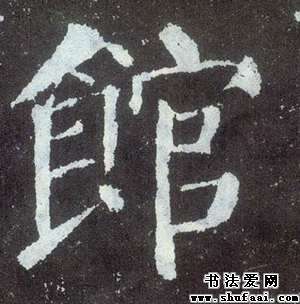 館
书法爱网
www.shufaai.com